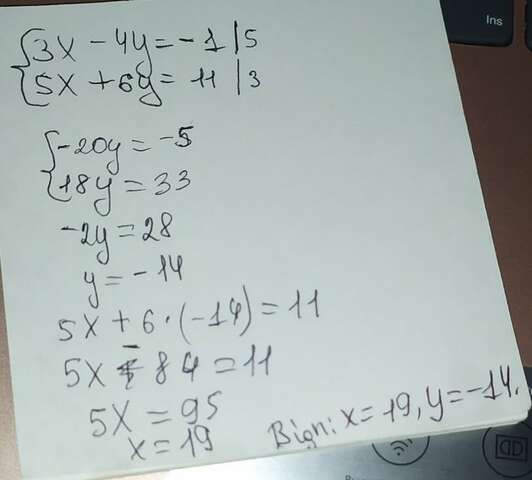 Ins
{3x - 4y = -1 |5
{5x + 6y = 11 |3
{-20y = -5
{18y = 33
-2y = 28
y = -14
5x + 6 · (-14) = 11
5x - 84 = 11
5x = 95
x = 19
Відп: x = 19, y = -14.